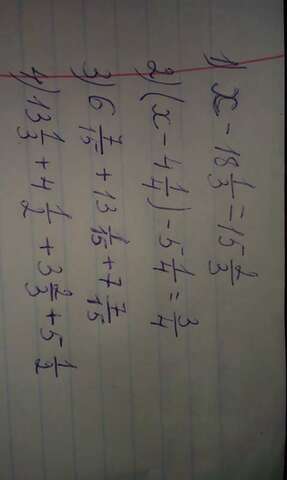 1) x - 18 1/3 = 15 2/3
2) (x - 4 1/4) - 5 1/4 = 3/4
3) 6 7/15 + 13 1/15 + 7 7/15
4) 13 1/3 + 4 1/2 + 3 2/3 + 5 1/2